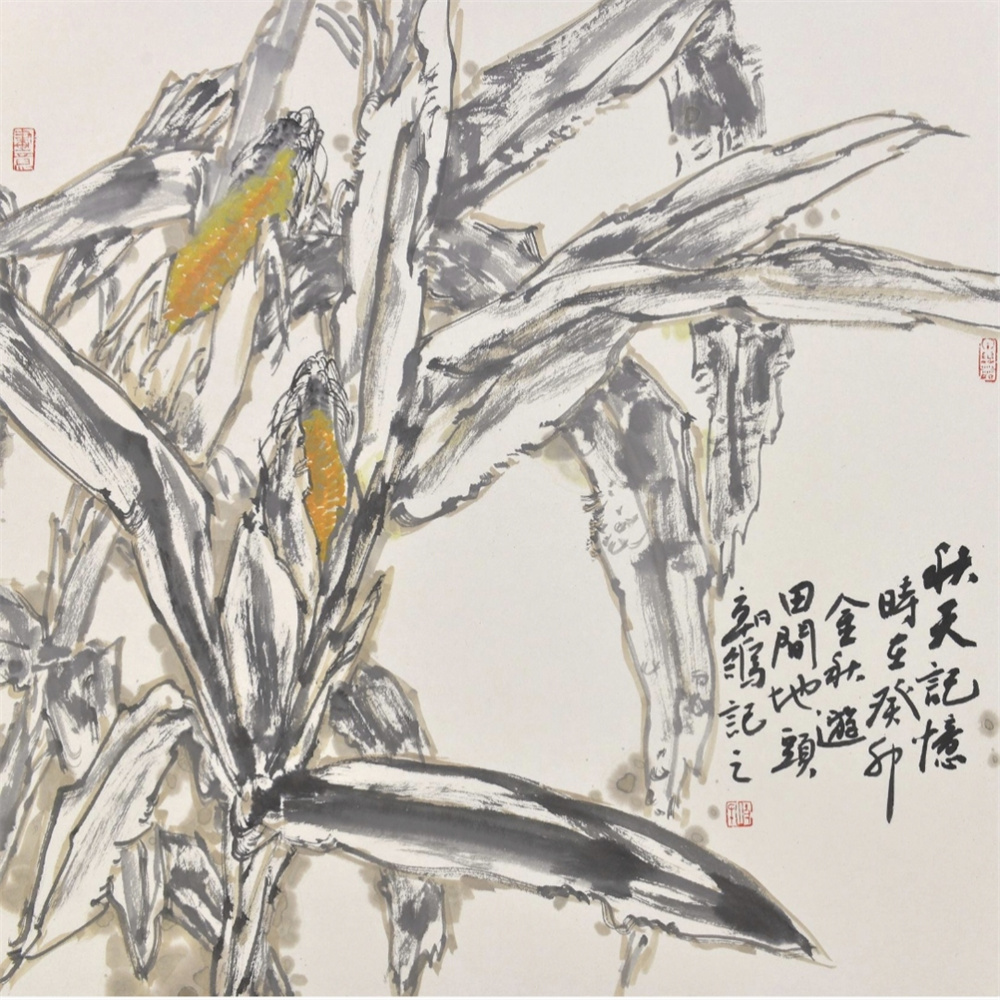 秋天記憶
時在癸卯
金秋遊
田間地頭
記之